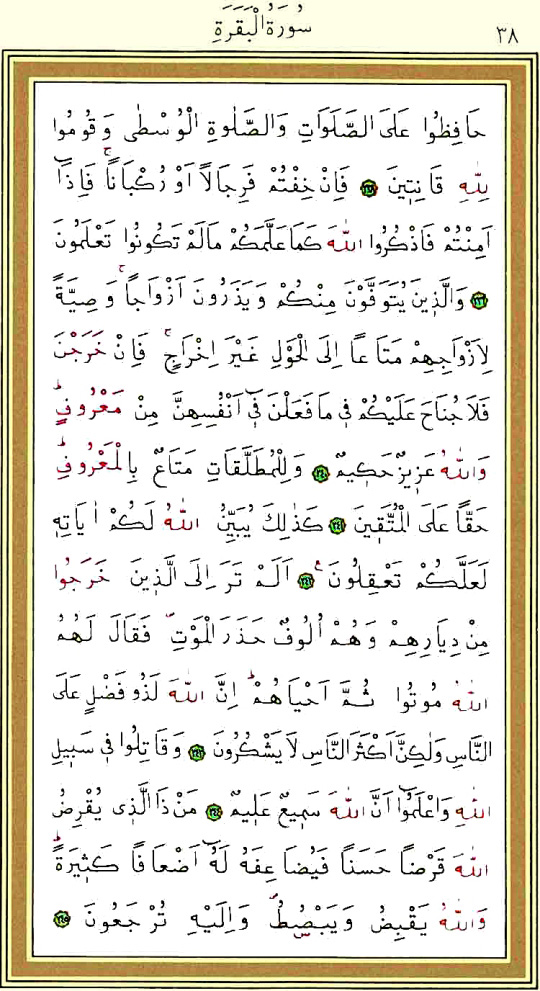 سُورَةُ الْبَقَرَةِ ٣٨
حَافِظُوا عَلَى الصَّلَوَاتِ وَالصَّلٰوةِ الْوُسْطٰى وَقُومُوا
لِلّٰهِ قَانِتٖينَ ﴿٢٣٨﴾ فَاِنْ خِفْتُمْ فَرِجَالًا اَوْ رُكْبَانًاۚ فَاِذَٓا
اَمِنْتُمْ فَاذْكُرُوا اللّٰهَ كَمَا عَلَّمَكُمْ مَالَمْ تَكُونُوا تَعْلَمُونَ
﴿٢٣٩﴾ وَالَّذٖينَ يُتَوَفَّوْنَ مِنْكُمْ وَيَذَرُونَ اَزْوَاجًاۚ وَصِيَّةً
لِاَزْوَاجِهِمْ مَتَاعًا اِلَى الْحَوْلِ غَيْرَ اِخْرَاجٍۚ فَاِنْ خَرَجْنَ
فَلَا جُنَاحَ عَلَيْكُمْ فٖى مَا فَعَلْنَ فٖٓى اَنْفُسِهِنَّ مِنْ مَعْرُوفٍؕ
وَاللّٰهُ عَزٖيزٌ حَكٖيمٌ ﴿٢٤٠﴾ وَلِلْمُطَلَّقَاتِ مَتَاعٌ بِالْمَعْرُوفِؕ
حَقًّا عَلَى الْمُتَّقٖينَ ﴿٢٤١﴾ كَذٰلِكَ يُبَيِّنُ اللّٰهُ لَكُمْ اٰيَاتِهٖ
لَعَلَّكُمْ تَعْقِلُونَ ࣖ ﴿٢٤٢﴾ اَلَمْ تَرَ اِلَى الَّذٖينَ خَرَجُوا
مِنْ دِيَارِهِمْ وَهُمْ اُلُوفٌ حَذَرَ الْمَوْتِࣕ فَقَالَ لَهُمُ
اللّٰهُ مُوتُوا ثُمَّ اَحْيَاهُمْؕ اِنَّ اللّٰهَ لَذُو فَضْلٍ عَلَى
النَّاسِ وَلٰكِنَّ اَكْثَرَ النَّاسِ لَا يَشْكُرُونَ ﴿٢٤٣﴾ وَقَاتِلُوا فٖى سَبٖيلِ
اللّٰهِ وَاعْلَمُٓوا اَنَّ اللّٰهَ سَمٖيعٌ عَلٖيمٌ ﴿٢٤٤﴾ مَنْ ذَا الَّذٖى يُقْرِضُ
اللّٰهَ قَرْضًا حَسَنًا فَيُضَاعِفَهُ لَهُٓ اَضْعَافًا كَثٖيرَةًؕ
وَاللّٰهُ يَقْبِضُ وَيَبْصُۣطُࣕ وَاِلَيْهِ تُرْجَعُونَ ﴿٢٤٥﴾